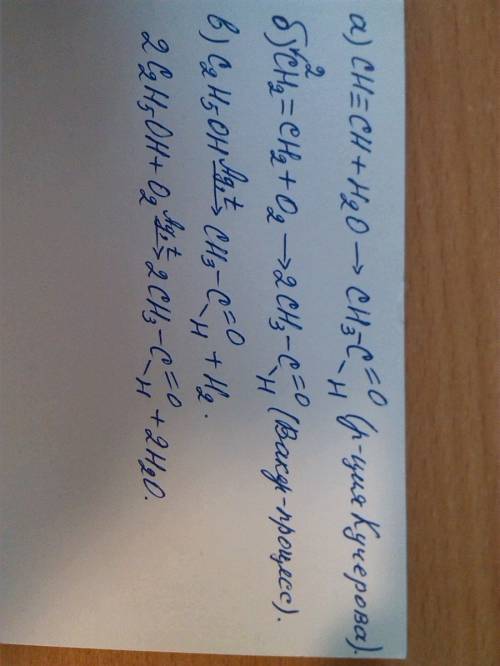 а) CH≡CH + H₂O → CH₃-C=O H (р-ция Кучерова).
б) 2CH₂=CH₂ + O₂ → 2CH₃-C=O H (Вакер-процесс).
в) C₂H₅OH Ag, t → CH₃-C=O H + H₂.
2C₂H₅OH + O₂ Ag, t → 2CH₃-C=O H + 2H₂O.